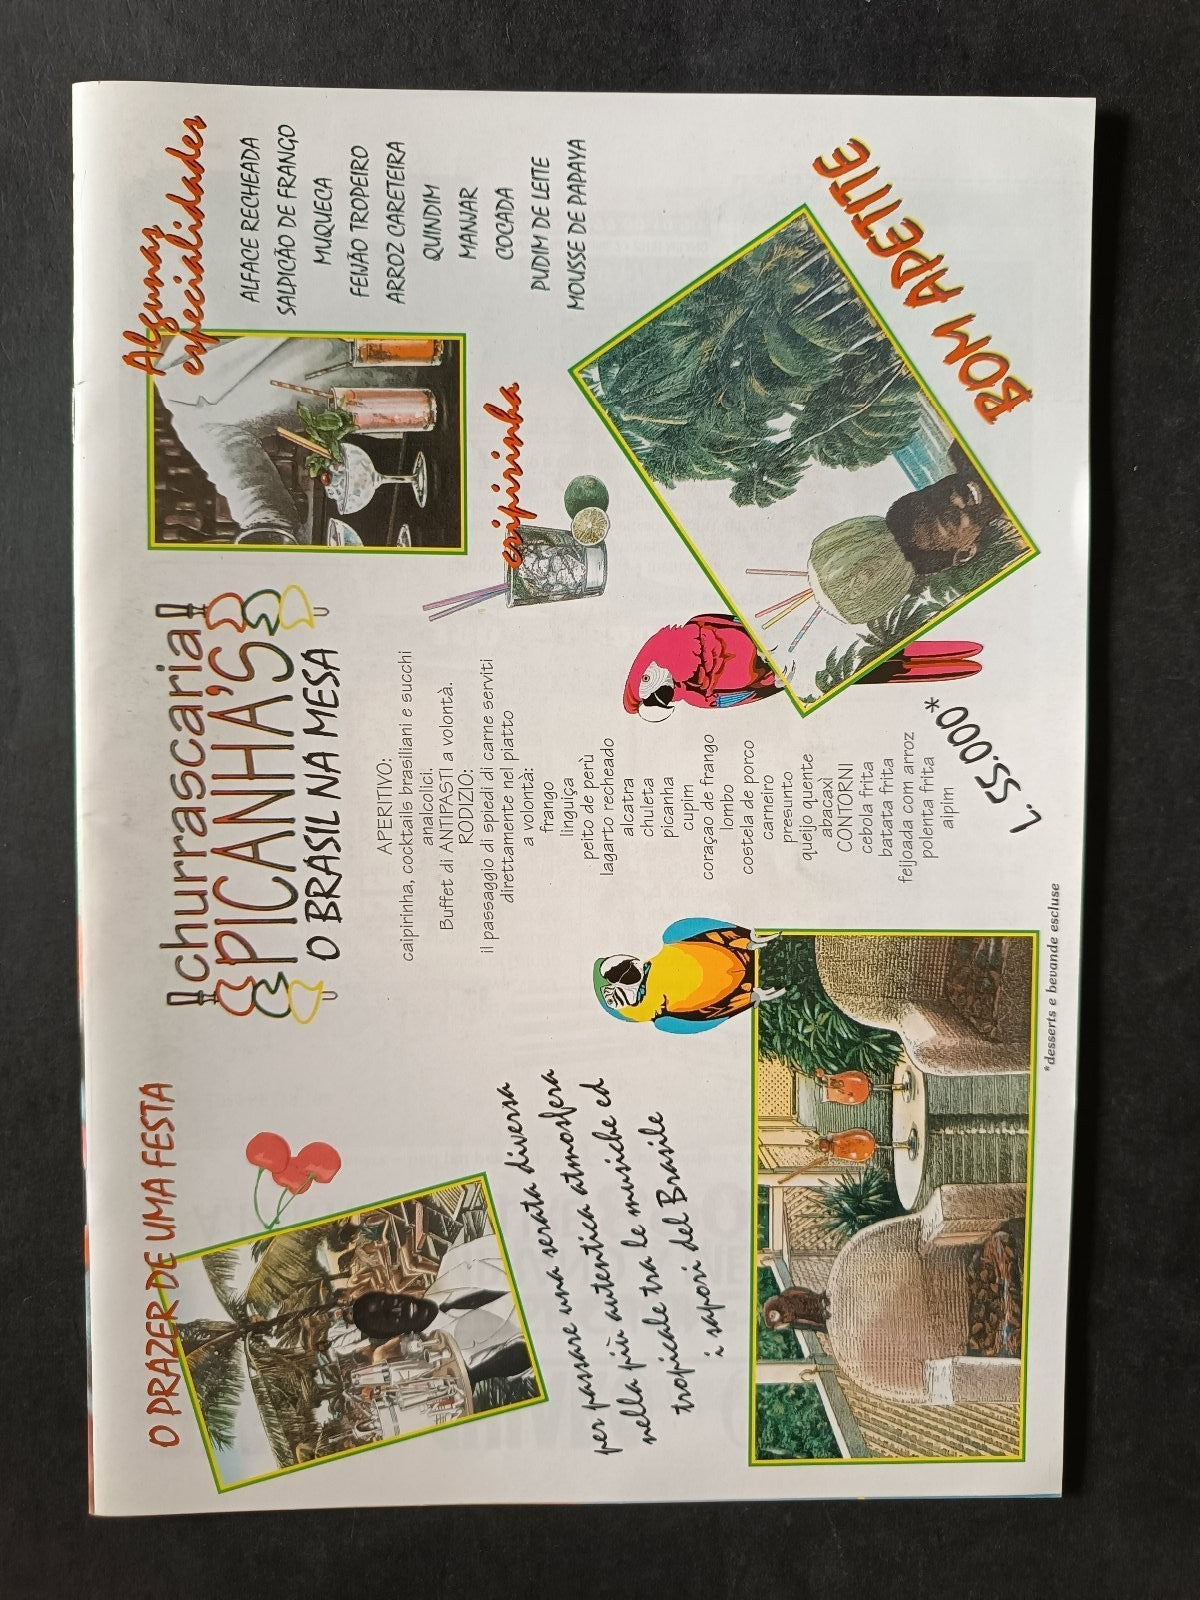 O PRAZER DE UMA FESTA
per passare una serata diversa
nella più autentica atmosfera
tropicale tra le musiche ed
i sapori del Brasile
churrascaria
PICANHA'S
O BRASIL NA MESA
APERITIVO:
caipirinha, cocktails brasiliani e succhi
analcolici.
Buffet di ANTIPASTI a volontà.
RODIZIO:
il passaggio di spiedi di carne serviti
direttamente nel piatto
a volontà:
frango
linguiça
peito de perù
lagarto recheado
alcatra
chuleta
picanha
cupim
coraçao de frango
lombo
costela de porco
carneiro
presunto
queijo quente
abacaxì
CONTORNI
cebola frita
batata frita
feijoada com arroz
polenta frita
aipim
L. 55.000*
*desserts e bevande escluse
caipirinha
Algumas
especialidades
ALFACE RECHEADA
SALPICÃO DE FRANGO
MUQUECA
FEIJÃO TROPEIRO
ARROZ CARETEIRA
QUINDIM
MANJAR
COCADA
PUDIM DE LEITE
MOUSSE DE PAPAYA
BOM APETITE